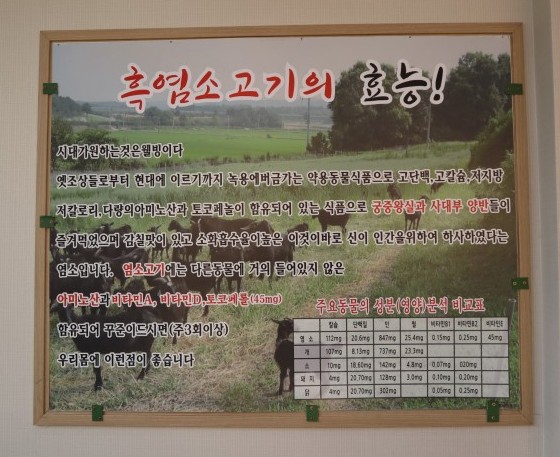 흑염소고기의 효능!
시대가원하는것은웰빙이다
옛조상들로부터 현대에 이르기까지 녹용에버금가는 약용동물식품으로 고단백,고칼슘,저지방
저칼로리,다량의아미노산과 토코페놀이 함유되어 있는 식품으로 궁중왕실과 사대부 양반들이
즐겨먹었으며 감칠맛이 있고 소화흡수율이높은 이것이바로 신이 인간을위하여 하사하였다는
염소입니다. 염소고기에는 다른동물에 거의 들어있지 않은
아미노산과비타민A, 비타민D,토코페롤(45mg)
함유되어 꾸준이드시면(주3회이상)
우리몸에 이런점이 좋습니다
주요동물의 성분(영양)분석 비교표
칼슘 단백질 인 철 비타민B1 비타민B2 비타민E
염소 112mg 20,6mg 847mg 25.4mg 0.15mg 0,25mg 45mg
개 107mg 8.13mg 737mg 23.3mg
소 10mg 18,60mg 142mg 4.8mg 0,07mg 020mg
돼지 4mg 20,70mg 128mg 3.0mg 0,10mg 0.20mg
닭 4mg 20,70mg 302mg 0.05mg 0,25mg